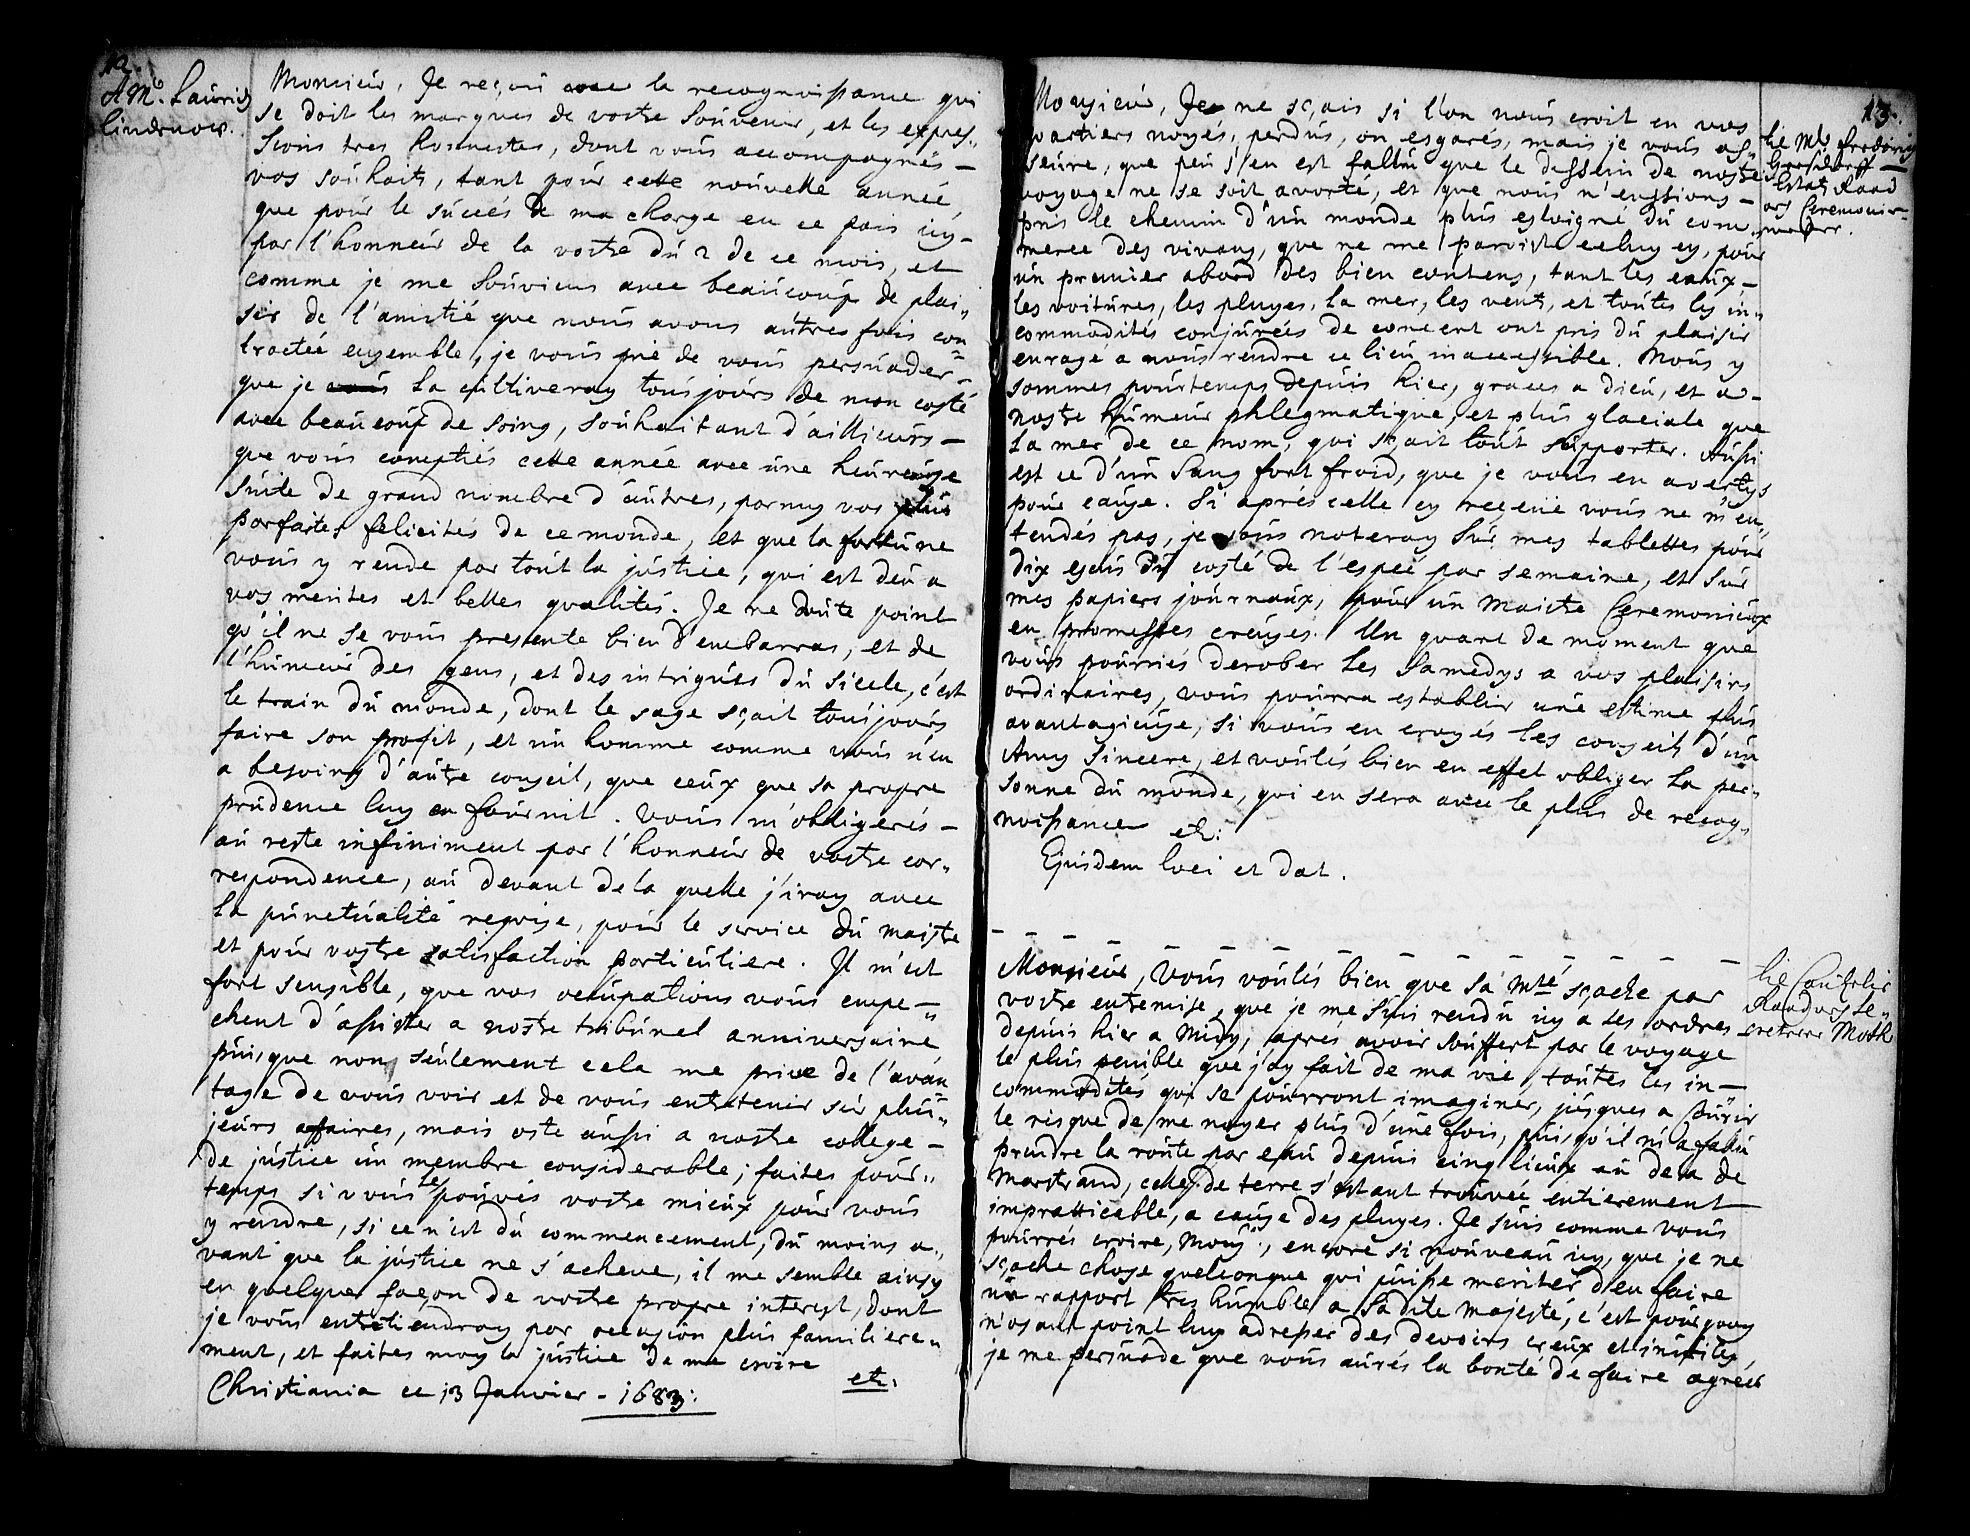 12.
A Mr. Laurids
Lindenow.
Monsieur, Je reçoi avec la recognoissance qui
se doit les marques de vostre souvenir, et les expres„
sions tres honnestes, dont vous accompagnés –
vos souhaits, tant pour cette nouvelle année,
que pour le succés de ma charge en ce pais icy –
par l'honneur de la vostre du 2 de ce mois, et
comme je me souviens avec beaucoup de plai„
sir de l'amitié que nous avons autres fois con
tractée ensemble, je vous prie de vous persuader
que je la cultiveray tousjours de mon costé
avec beaucoup de soing, souhaitant d'ailleurs –
que vous comptiés cette année avec une heureuse
suite de grand nombre d'autres, parmy vos plus
parfaites felicités de ce monde, et que la fortune
vous y rende par tout la justice, qui est deu a
vos merites et belles qualités. Je ne doute point
qu'il ne se vous presente bien d'embarras, et de
l'humeur des gens, et des intrigues du siecle, c'est
le train du monde, dont le sage sçait tousjours
faire son profit, et un homme comme vous n'en
a besoing d'autre conseil, que ceux que sa propre
prudence luy en fournit. Vous m'obligerés –
au reste infiniment par l'honneur de vostre cor„
respondence, au devant de la quelle j'iray avec
la punctualité requise, pour le service du maistre
et pour vostre satisfaction particuliere. Il m'est
fort sensible, que vos occupations vous empe–
chent d'assister a nostre tribunal anniversaire
puisque non seulement cela me prive de l'avan
tage de vous voir et de vous entretenir sur plu„
sieurs affaires, mais oste aussi a nostre college –
de justice un membre considerable; faites pour„
temps si vous le pouvés vostre mieux pour vous
y rendre, si ce n'est du commencement, du moins a„
vant que la justice ne s'acheve, il me semble ainsy
en quelque façon de vostre propre interest, dont
je vous entretiendray par occasion plus familiere„
ment, et faites moy la justice de me croire
etc:
Christiania ce 13 Janvier – 1683:
13.
Monsieur, Je ne sçais si l'on nous croit en vos
quartiers noyés, perdus, ou esgarés, mais je vous as„
seure, que peu s'en est fallu que le dessein de nostre
voyage ne se soit avorté, et que nous n'eussions –
pris le chemin d'un monde plus esloigné du com„
merce des vivans, que ne me paroist celuy cy, pour
un premier abord des bien contens, tant les eaux –
les voitures, les pluyes, la mer, les vents, et toutes les in„
commodités conjurées de concert ont pris du plaisir
enragé a nous rendre ce lieu inaccessible. Nous y
sommes pourtemps depuis hier, graces a Dieu, et a –
nostre humeur phlegmatique, et plus glaciale que
la mer de ce nom, qui sçait tout supporter. Aussi
est ce d'un sang fort froid, que je vous en avertys
pour cause. Si apres celle cy receüe vous ne m'en„
tendés pas, je vous noteray sur mes tablettes pour
dix escus du costé de l'espée par semaine, et sur
mes papiers journaux, pour un Maistre Ceremonieux
en promesses creuses. Un quart de moment que
vous pourriés derober les Samedys a vos plaisirs
ordinaires, vous pourra establir une estime plus
avantagieuse, si vous en croyés les conseils d'un
Amy sincere, et voulés bien en effet obliger la per„
sonne du monde, qui en sera avec le plus de recog„
noissance etc:
Ejusdem loci et dat.
til Mr. Frederich
Giersdorff –
Estats Raad
og Ceremonie–
mester.
Monsieur, Vous voulés bien que Sa Mté sçache par
vostre entremise, que je me suis rendu icy a ses ordres
depuis hier a Midy, aprés avoir souffert par le voyage
le plus penible que j'ay fait de ma vie, toutes les in–
commodités qui se pourront imaginer, jusques a courir
le risque de me noyer plus d'une fois, puisqu'il m'a fallu
prendre la route par eau depuis cinq lieux au dela de
Marstrand, celle de terre s'estant trouvée entierement
impratticable, a cause des pluyes. Je suis comme vous
pourrés croire, Monsr., encore si nouveau icy, que je ne
sçache chose quelconque qui puisse meriter d'en faire
un rapport tres humble a Sadite Majesté, c'est pourquoy
n'osant point luy adresser des devoirs creux et inutiles,
je me persuade que vous aurés la bonté de faire agréer
til Cancelie
Raad og Se„
creterer Moth